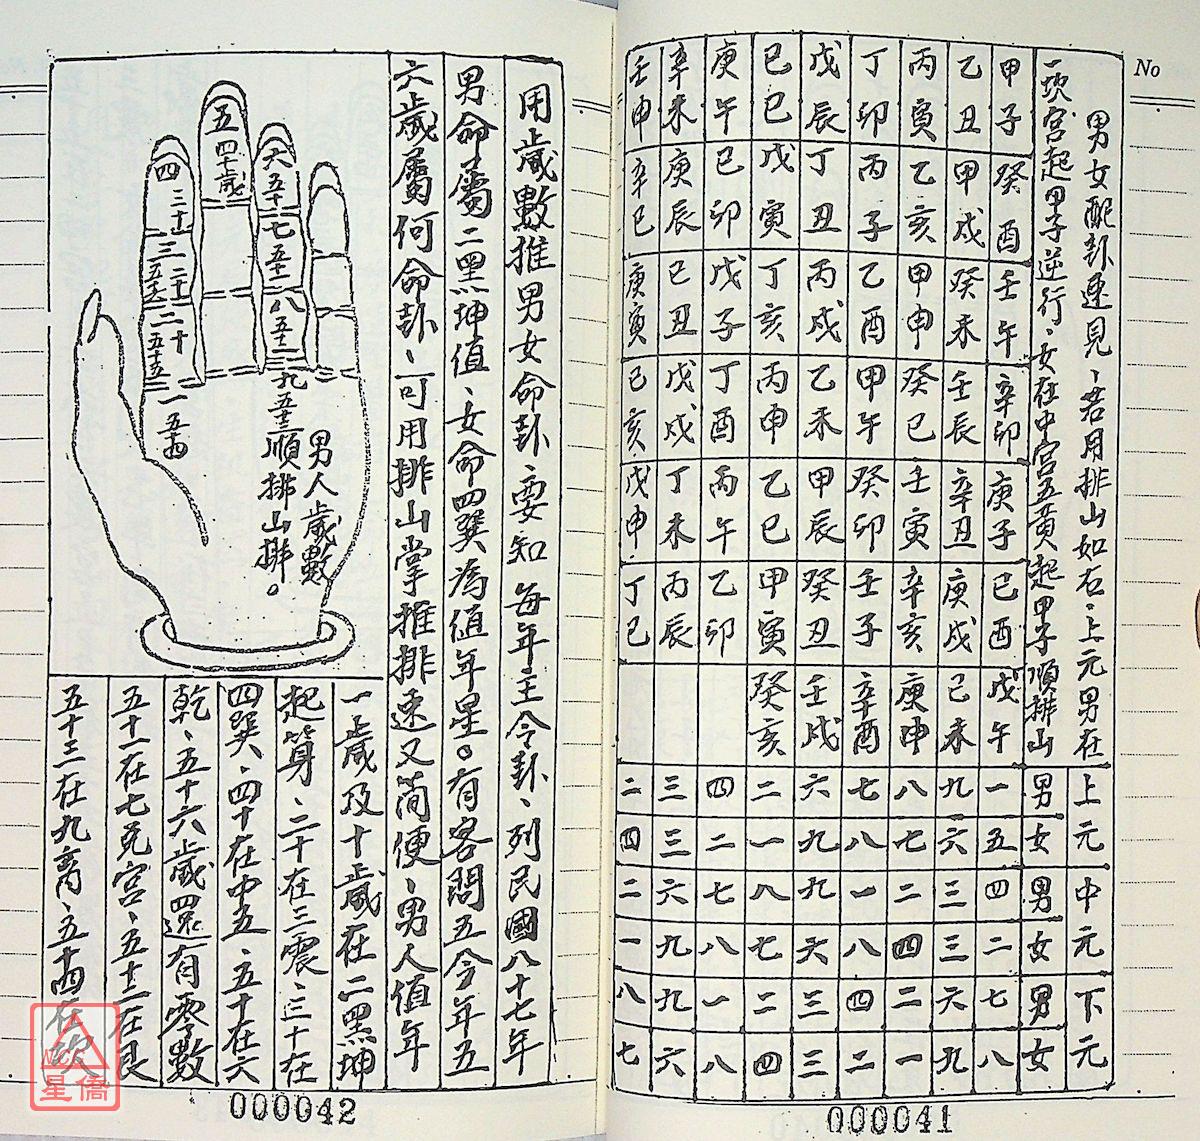 No
男女配卦速見、若用排山如右、上元男在
一坎宮起甲子逆行、女在中宮五黃起甲子順排山
上元 中元 下元
男 女 男 女 男 女
甲子 癸酉 壬午 辛卯 庚子 己酉 戊午 一 五 四 二 七 八
乙丑 甲戌 癸未 壬辰 辛丑 庚戌 己未 九 六 三 三 六 九
丙寅 乙亥 甲申 癸巳 壬寅 辛亥 庚申 八 七 二 四 二 一
丁卯 丙子 乙酉 甲午 癸卯 壬子 辛酉 七 八 一 八 四 二
戊辰 丁丑 丙戌 乙未 甲辰 癸丑 壬戌 六 九 九 六 三 三
己巳 戊寅 丁亥 丙申 乙巳 甲寅 癸亥 二 一 八 七 二 四
庚午 己卯 戊子 丁酉 丙午 乙卯 四 二 七 八 一 八
辛未 庚辰 己丑 戊戌 丁未 丙辰 三 三 六 九 九 六
壬申 辛巳 庚寅 己亥 戊申 丁巳 二 四 二 一 八 七
000041
用歲數推男女命卦、要知每年主令卦、列民國八十七年
男命屬二黑坤值、女命四巽為值年星。有客問五今年五
六歲屬何命卦、可用排山掌推排速又简便、男人值年
一歲及十歲在二黑坤
起算、二十在三震、三十在
四巽、四十在中五、五十在六
乾、五十六歲還有零數
五十一在七兌宮、五十二在艮
五十三在九离、五十四在坎
男人歲數
順排山排。
六五十
七五十一
八五十二
九五十三
五四十歲
四三十
三二十
二十五十五
一五十四
000042
NCC
星僑